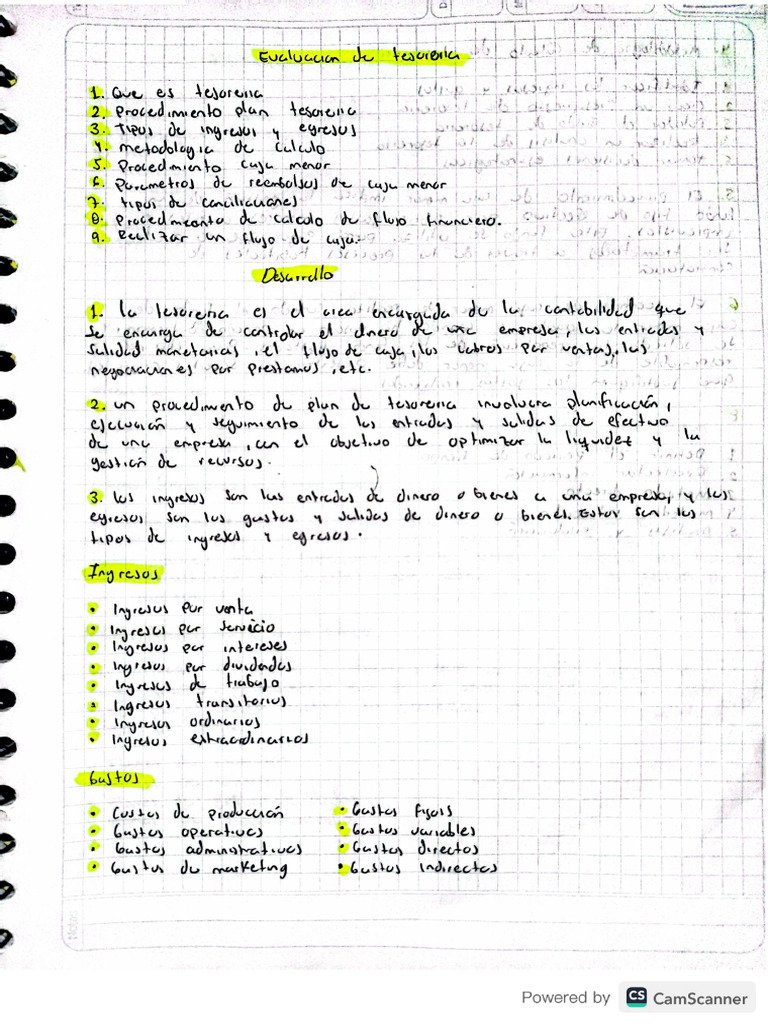 Evaluacion de tesoreria
1. Que es tesoreria
2. Procedimiento plan tesoreria
3. Tipos de ingresos y egresos
4. metodologia de calculo
5. Procedimiento caja menor
6. Parametros de reembolsos de caja menor
7. tipos de conciliaciones
8. Procedimiento de calculo de flujo financiero.
9. Realizar un flujo de caja.
Desarrollo
1. la tesoreria es el area encargada de la contabilidad que
se encarga de controlar el dinero de una empresa, las entradas y
salidad monetarias, el flujo de caja, los cobros por ventas, las
negociaciones por prestamos, etc.
2. un procedimiento de plan de tesoreria involucra planificación,
ejecución y seguimiento de las entradas y salidas de efectivo
de una empresa, con el objetivo de optimizar la liquidez y la
gestión de recursos.
3. los ingresos son las entradas de dinero o bienes a una empresa, y los
egresos son los gastos y salidas de dinero o bienes. Estos son los
tipos de ingresos y egresos.
Ingresos
• Ingresos por venta
• Ingresos por servicio
• Ingresos por intereses
• Ingresos por dividendos
• Ingresos de trabajo
• Ingresos transitorios
• Ingresos ordinarios
• Ingresos extraordinarios
Gastos
• Costos de producción • Gastos fijos
• Gastos operativos • Gastos variables
• Gastos administrativos • Gastos directos
• Gastos de marketing • Gastos indirectos
Powered by CS CamScanner